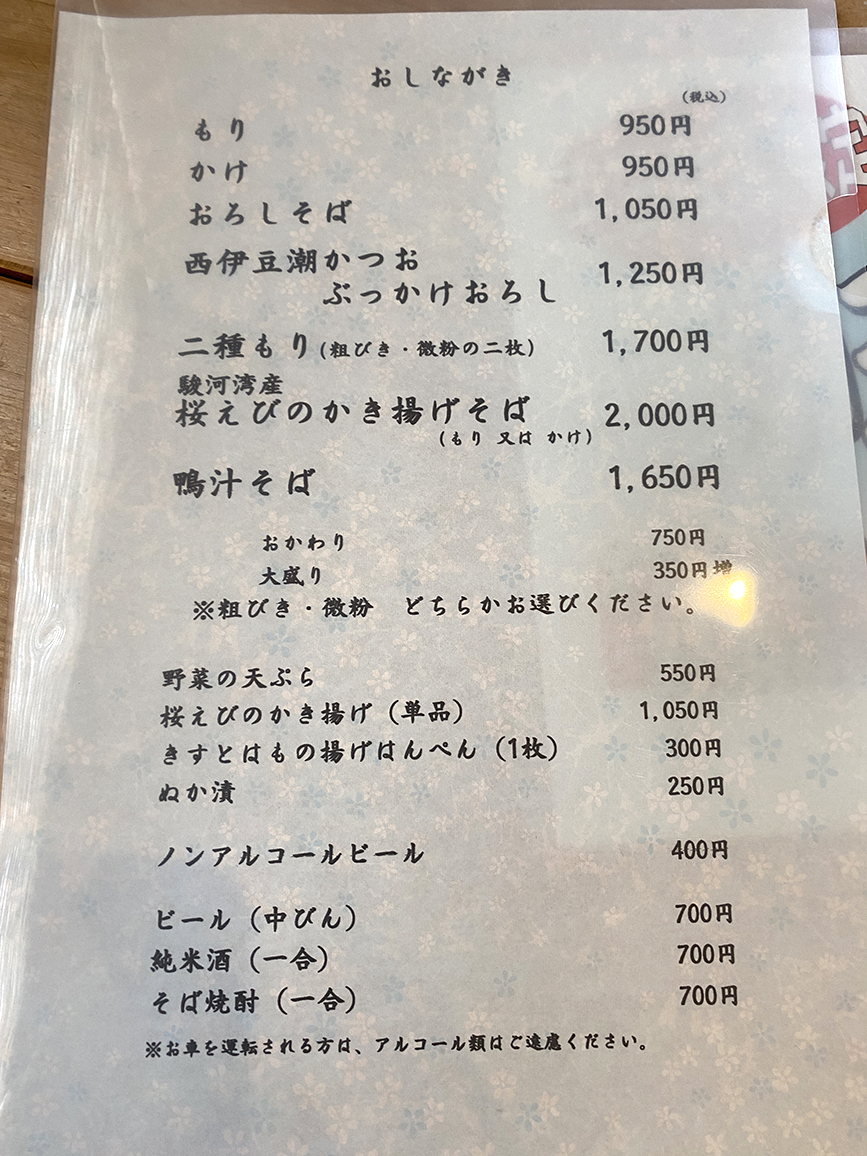 おしながき
(税込)
もり 950円
かけ 950円
おろしそば 1,050円
西伊豆潮かつお
ぶっかけおろし 1,250円
二種もり(粗びき・微粉の二枚) 1,700円
駿河湾産
桜えびのかき揚げそば 2,000円
(もり 又は かけ)
鴨汁そば 1,650円
おかわり 750円
大盛り 350円増
※粗びき・微粉 どちらかお選びください。
野菜の天ぷら 550円
桜えびのかき揚げ(単品) 1,050円
きすとはもの揚げはんぺん(1枚) 300円
ぬか漬 250円
ノンアルコールビール 400円
ビール(中びん) 700円
純米酒(一合) 700円
そば焼酎(一合) 700円
※お車を運転される方は、アルコール類はご遠慮ください。